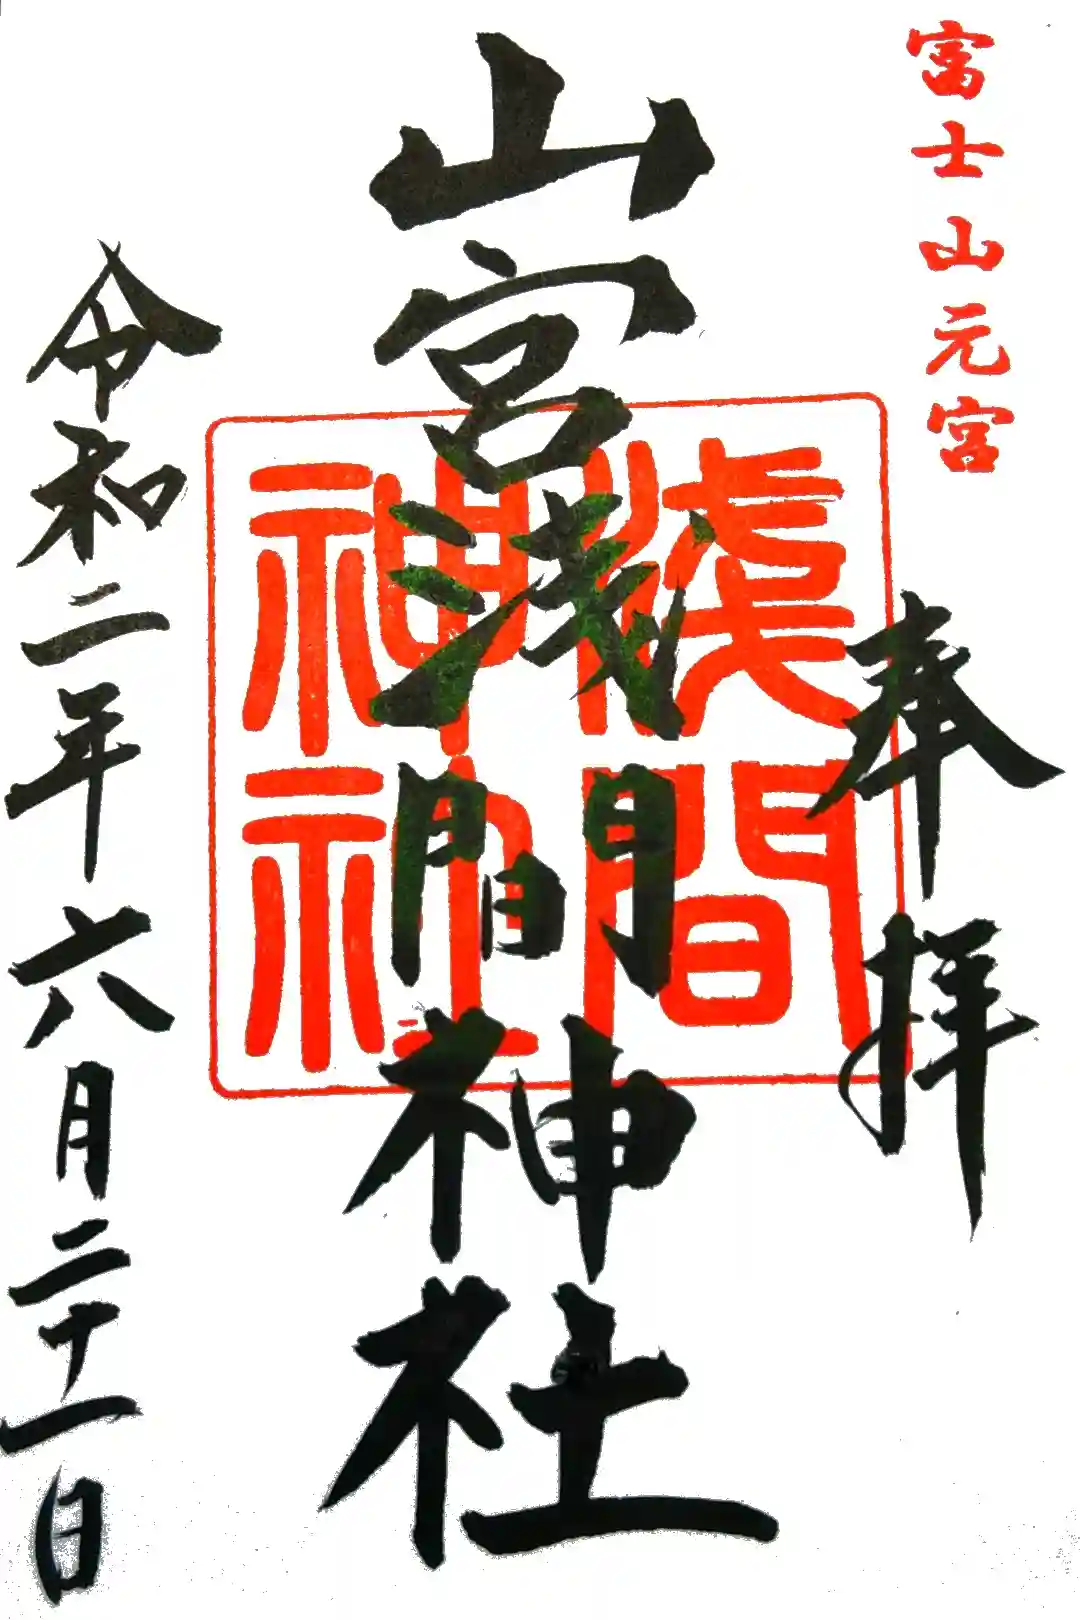 富士山元宮
奉拝
山宮浅間神社
淺間
神社
令和二年六月二十一日